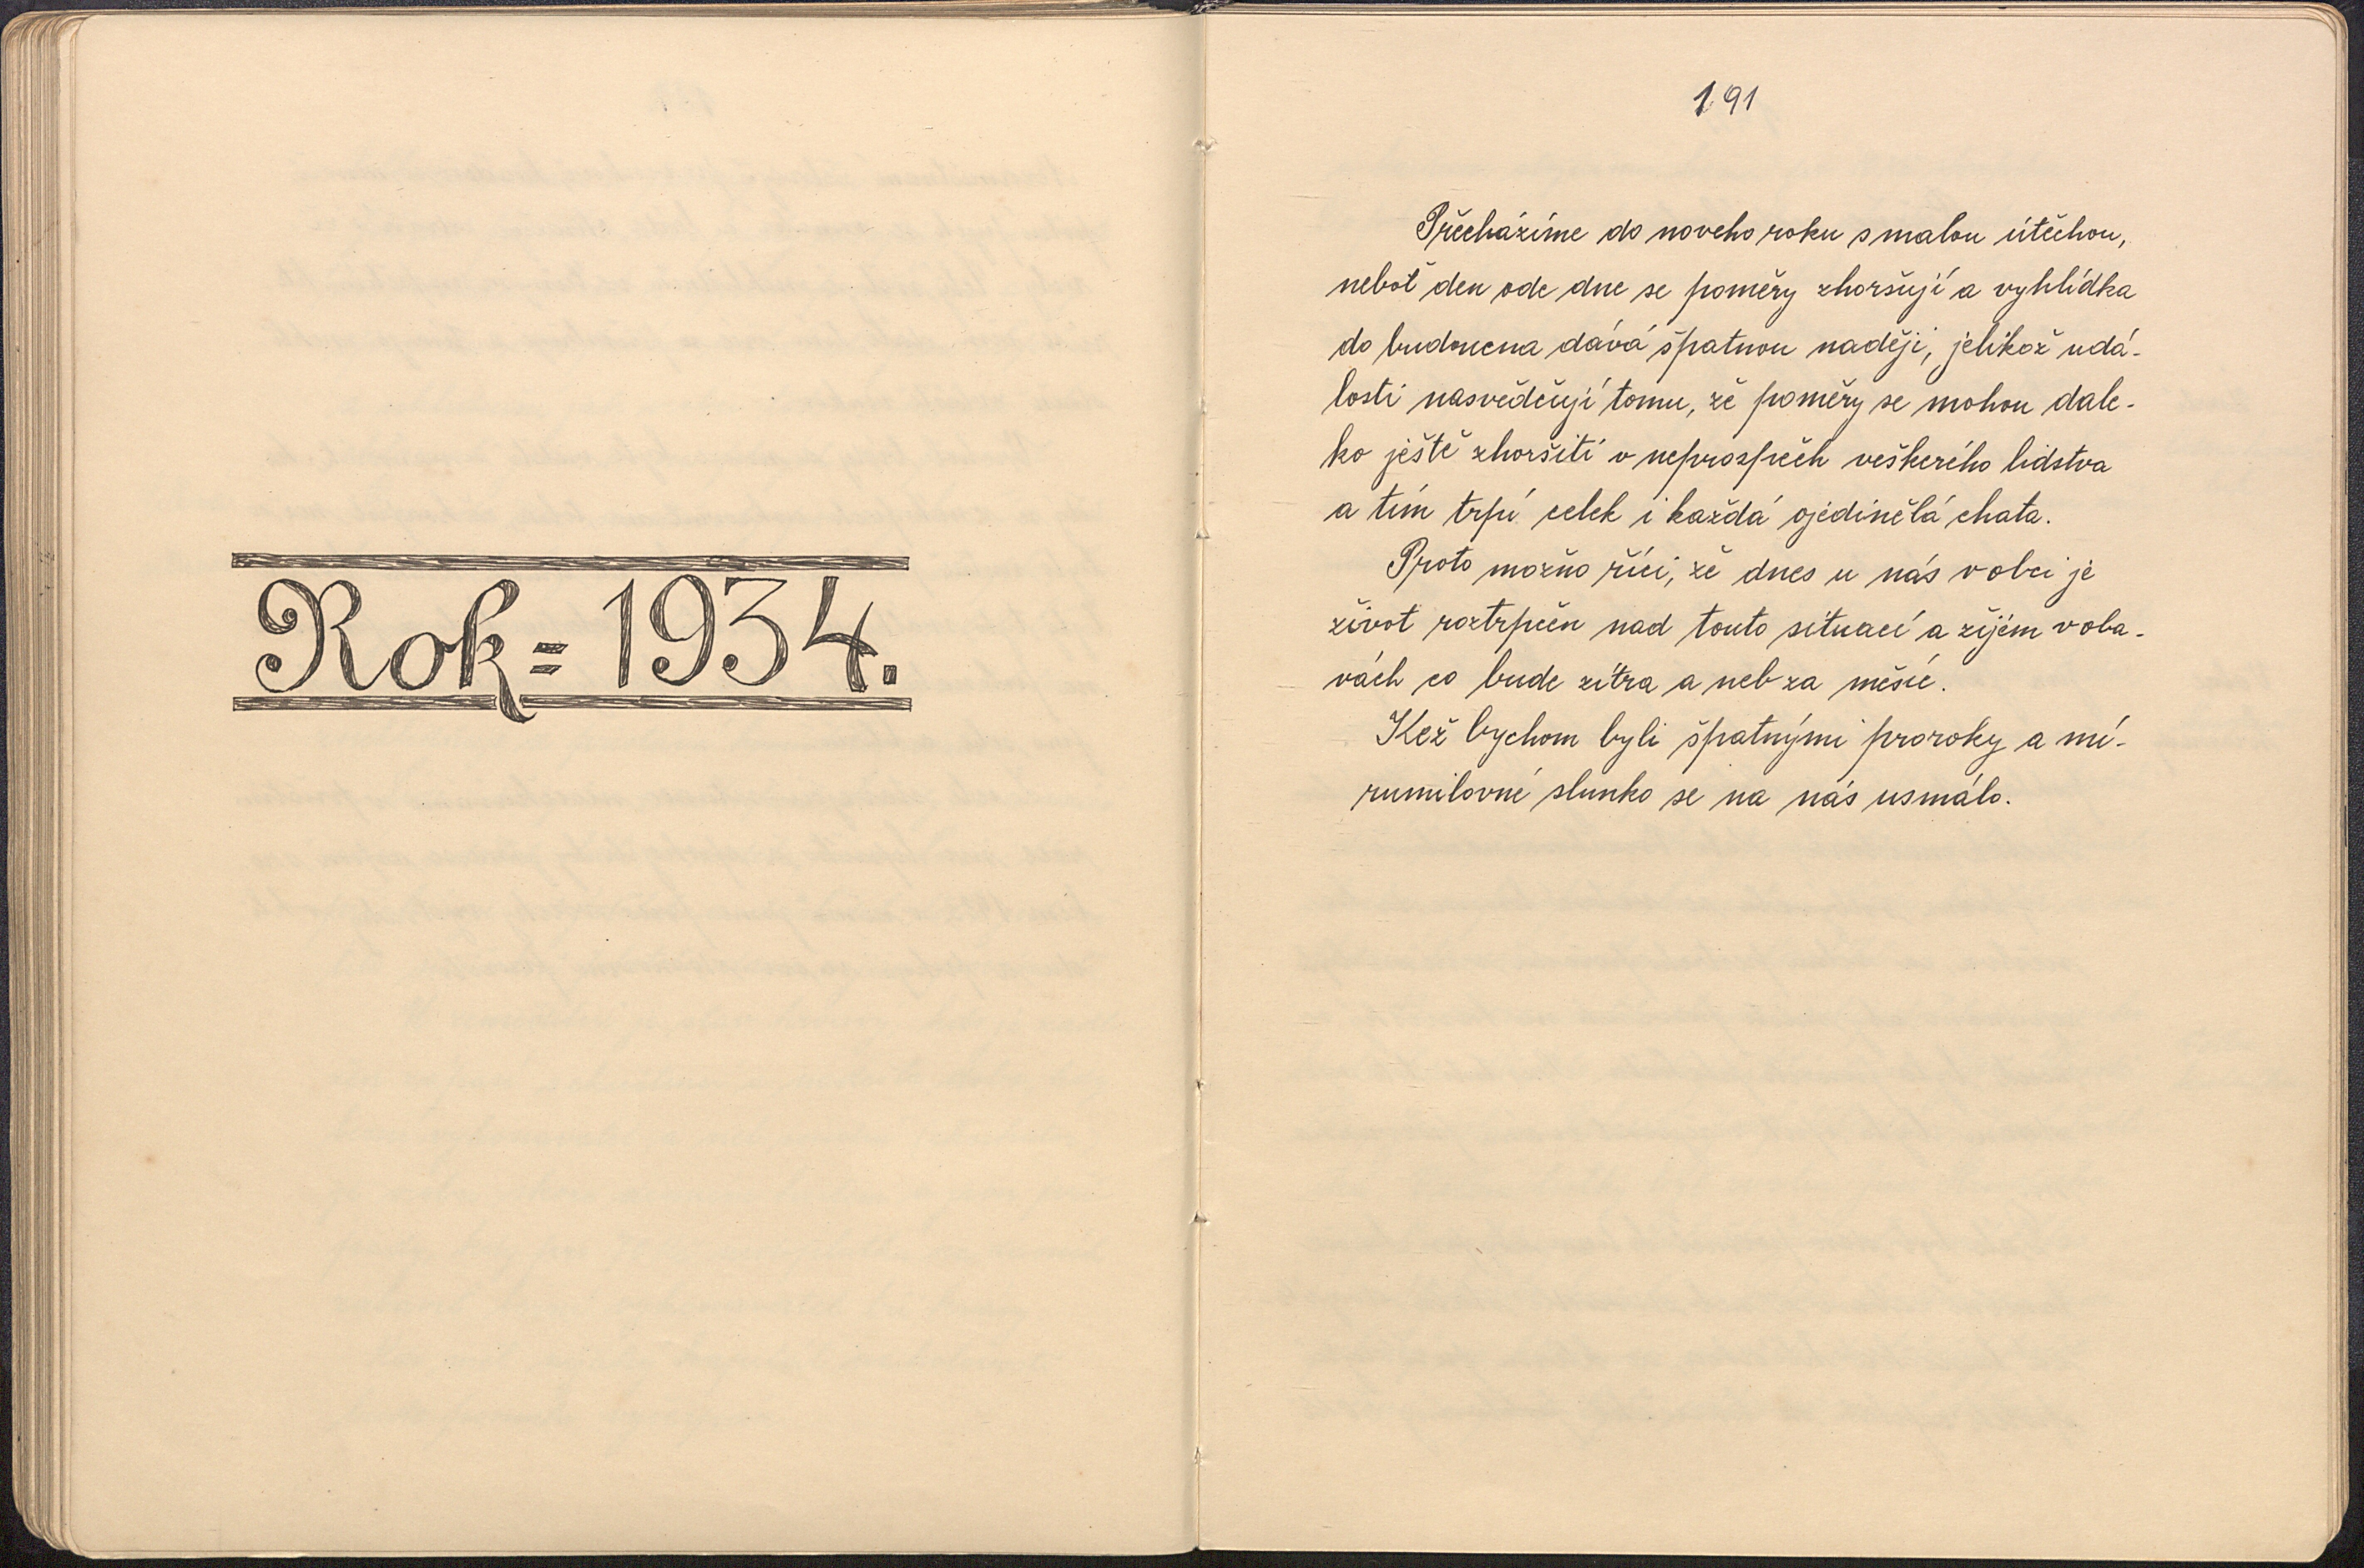 Rok = 1934.
191
Přecházíme do noveho roku s malou útěchou,
neboť den ode dne se poměry zhoršují a vyhlídka
do budoucna dává špatnou naději, jelikož udá-
losti nasvědčují tomu, že poměry se mohou dale-
ko ještě zhoršiti v neprospěch veškerého lidstva
a tím trpí celek i každá ojedinělá chata.
Proto možno říci, že dnes u nás v obci je
život roztrpčen nad touto situací a žijem v oba-
vách co bude zítra a neb za měsíc.
Kež bychom byli špatnými proroky a mí-
rumilovné slunko se na nás usmálo.